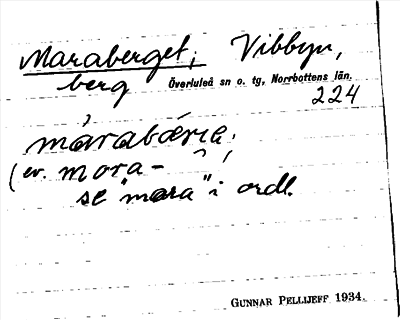 Maraberget, Vibbyn,
berg Överluleå sn o. tg, Norrbottens län.
224
márabǽrιε,
(ev. mora-
se "mara" i ordl.
GUNNAR PELLIJEFF 1934.